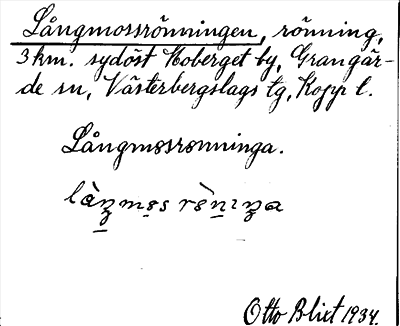 Långmossrönningen, rönning,
3 km. sydöst Hoberget by, Grangär-
de sn, Västerbergslags tg, Kopp l.
Långmosrønninga.
Otto Blixt 1934.